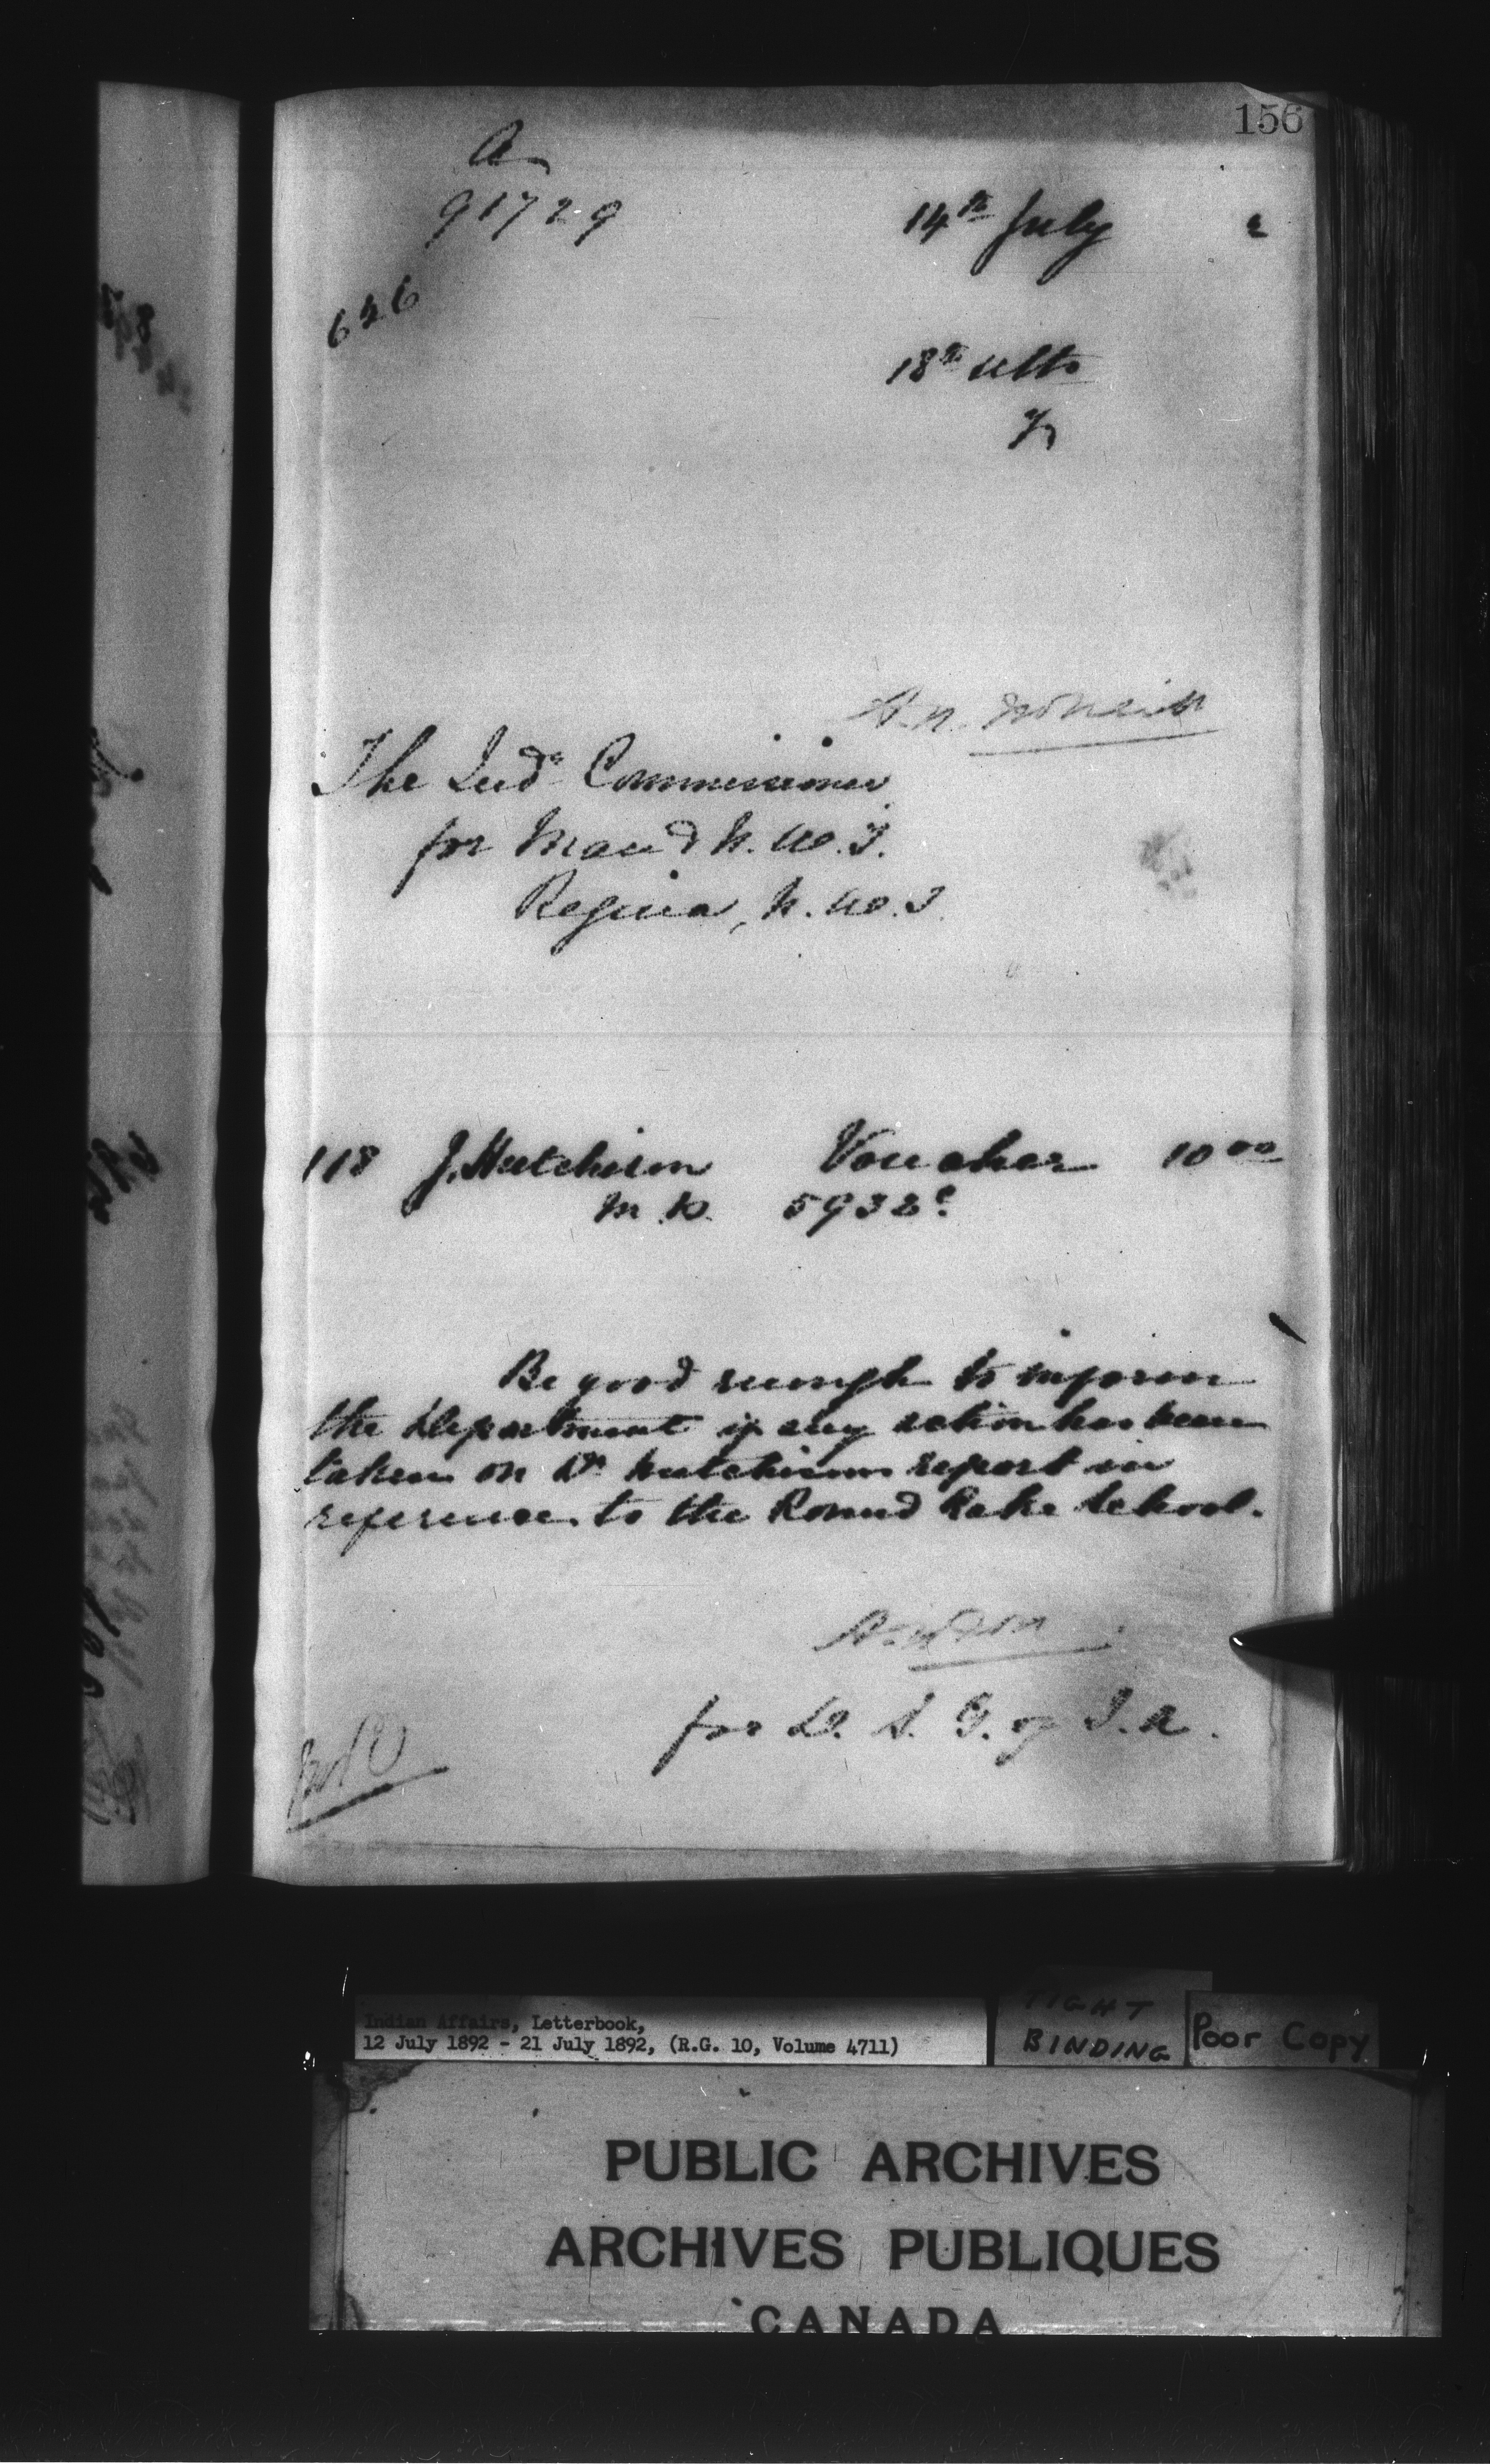 156
A
91729
14th July 2
626
18th ulto
The Indn Commissioner
for Man & N.W.T.
Regina, N.W.T.
118 J. Hutchison Voucher 10 00
5932
Be good enough to inform
the Department if any action has been
taken on Dr Hutchisons report in
reference to the Round Lake School.
for D. S. G. of I. A.
Indian Affairs, Letterbook,
12 July 1892 - 21 July 1892, (R.G. 10, Volume 4711)
TIGHT
BINDING
Poor Copy
PUBLIC ARCHIVES
ARCHIVES PUBLIQUES
CANADA